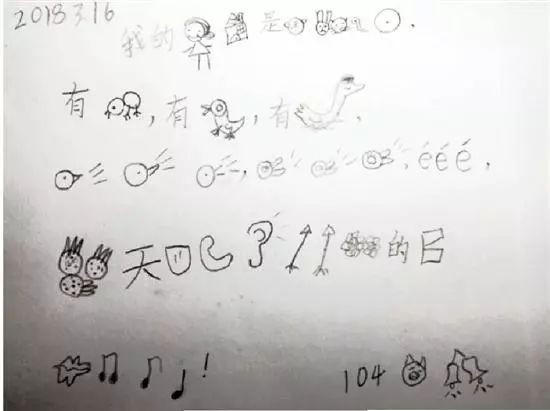 2018 3.16
我的 是 .
有 , 有 , 有 ,
, , é é é .
天 的
! 104